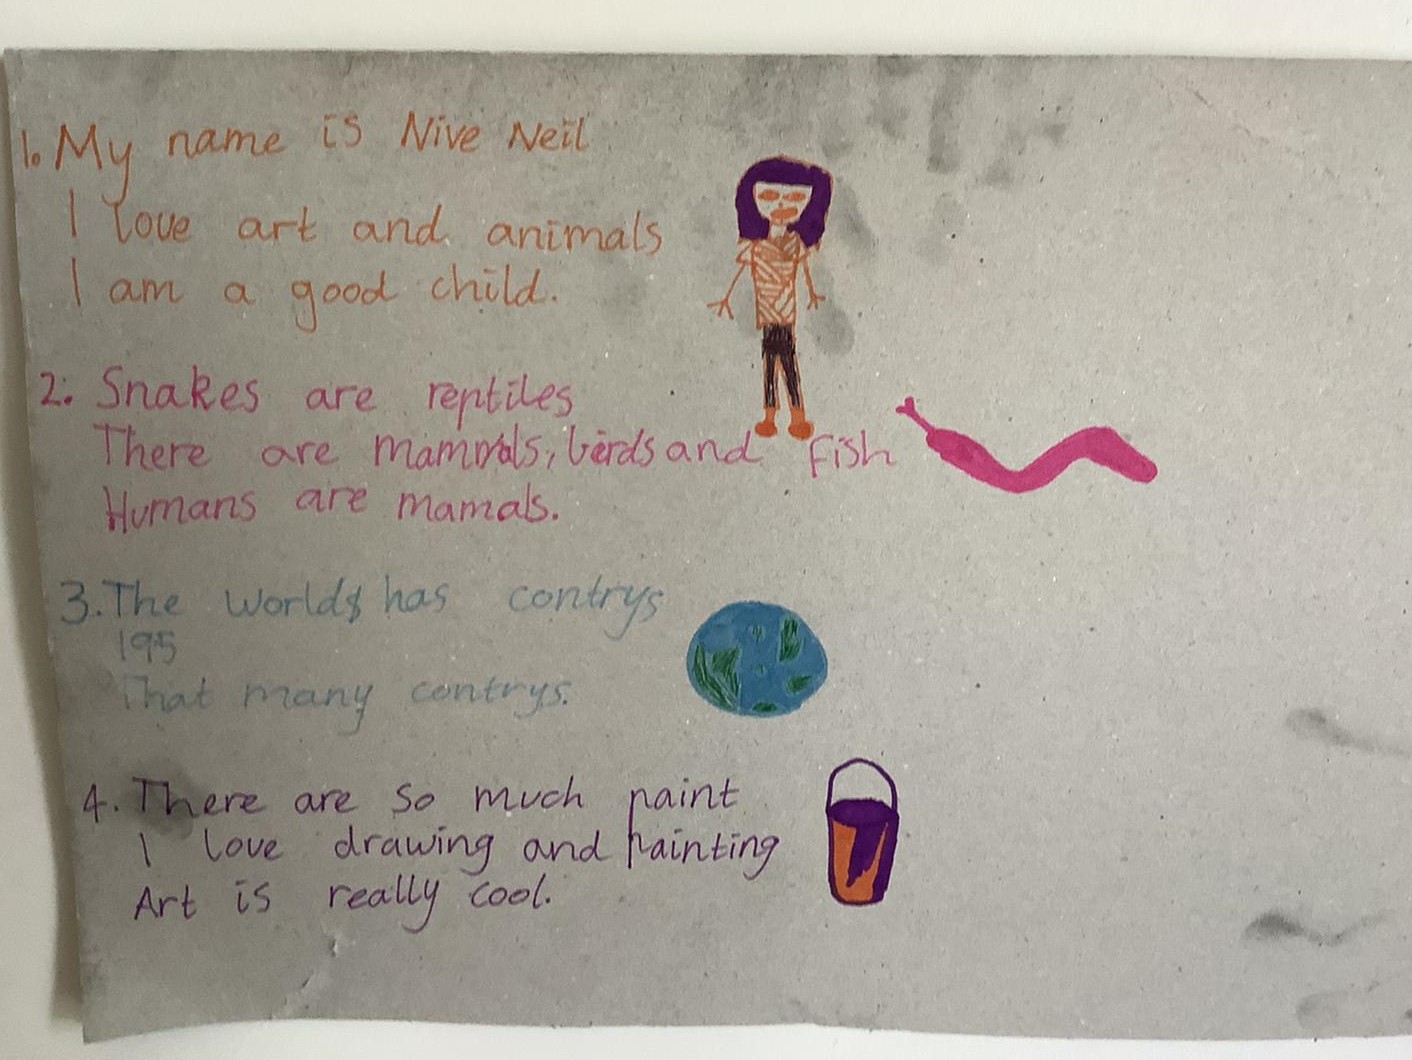 1. My name is Nive Neil
I love art and animals
I am a good child.
2. Snakes are reptiles
There are mammals, birds and fish
Humans are mamals.
3. The worlds has contrys
195
That many contrys.
4. There are so much paint
I love drawing and painting
Art is really cool.